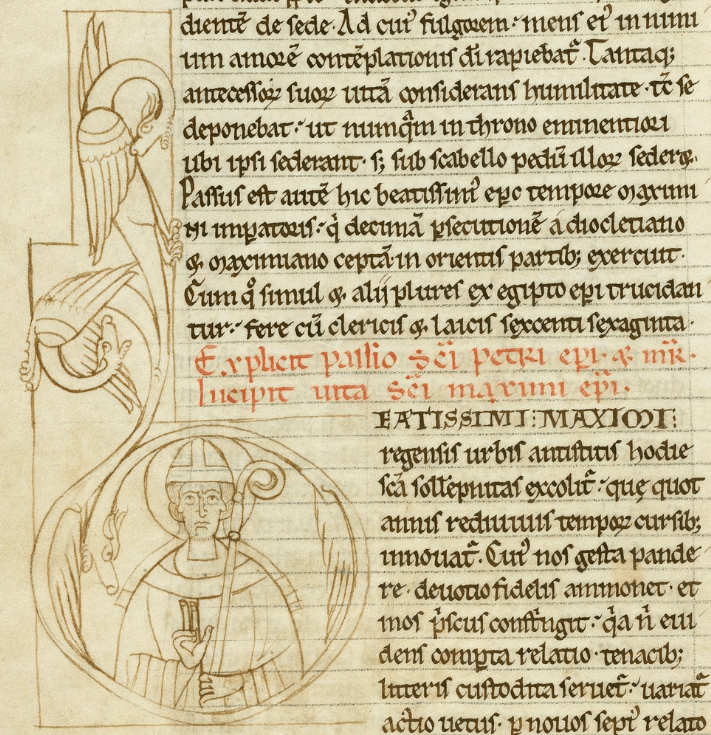 dientē de sede. Ad cui᾽ fulgorem: mens ei᾽ in nimi
um amorē contēplationis di rapiebat᷑. Tantaq;
antecessoꝝ suoꝝ uitā considerans humilitate. tē se
deponebat: ut numq̄m in throno eminentiori
ubi ipsi sederant. s; sub scabello pedū illoꝝ sederet.
Passus est autē hic beatissim᾽ epc tempore maximi
ni impatoris: q̇ decimā psecutionē a diocletiano
& maximiano ceptā in orientis partib; exercuit.
Cum q̊ simul & alij plures ex egipto epi trucidan
tur: fere cū clericis & laicis sexcenti sexaginta.
Explicit passio Sc̄i petri epi. & mr̄.
Incipit uita Sc̄i maximi epi.
EATISSIMI: MAXIMI:
regensis urbis antistitis hodie
sc̄a sollepnitas excolit᷑: quę quot
annis rediuiuis tempoꝝ cursib;
innouat᷑. Cui᾽ nos gesta pande
re. deuotio fidelis ammonet. et
mos p̄scus constringit: q̇a n̄ eui
dens compta relatio. tenacib;
litteris custodita seruet᷑: uariat᷑
actio uetus. p nouos sepi᾽ relato